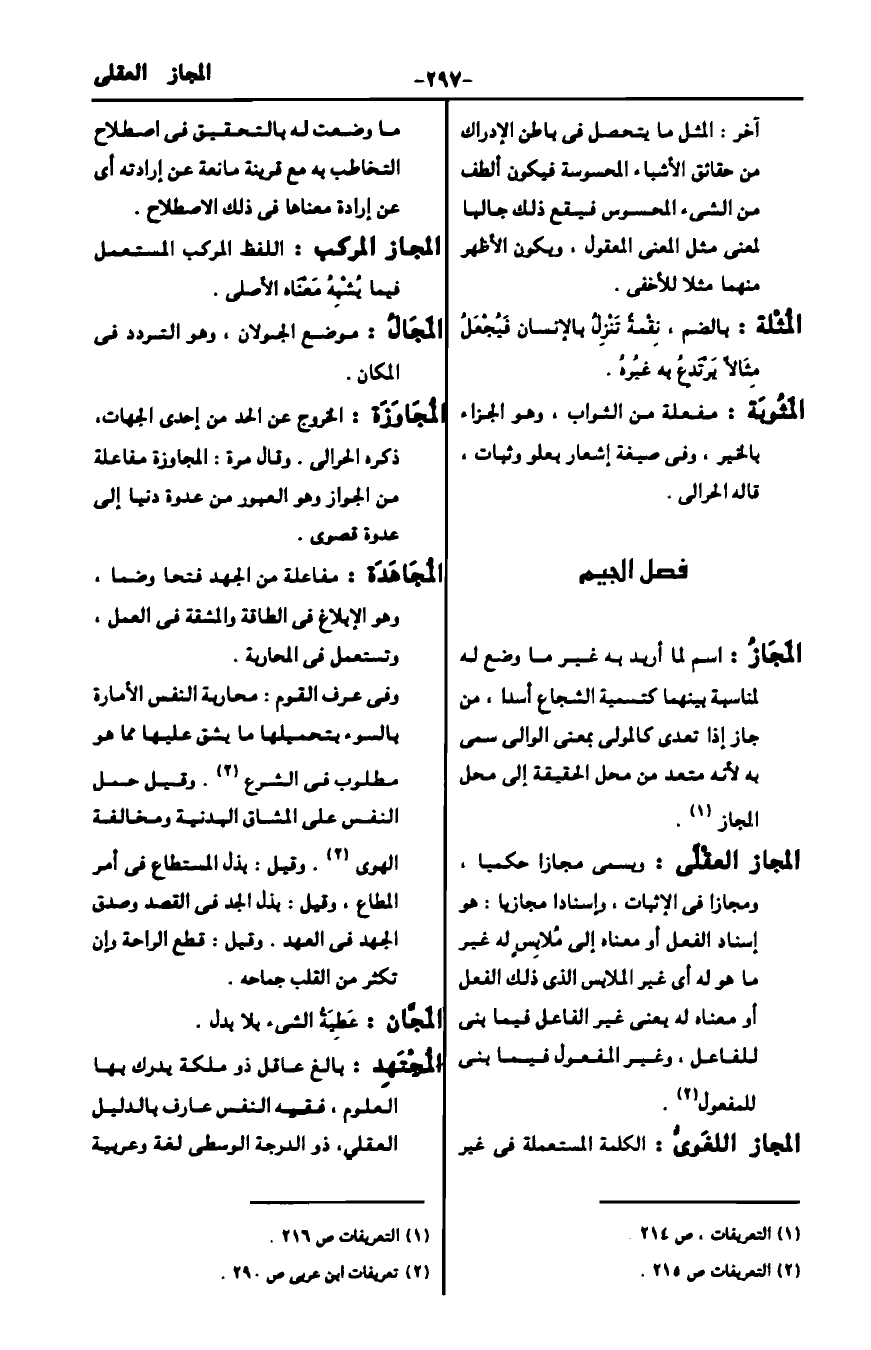 المجاز العقلى
-٢٩٧-
آخر : المثل ما يتحصل فى باطن الإدراك
من حقائق الأشياء المحسوسة فيكون ألطف
من الشىء المحسوس فيقع ذلك جاليا
لمعنى مثل المعنى المعقول ، ويكون الأظهر
منهما مثلا للأخفى .
المُثْلة : بالضم ، نِقْمةً تَنْزِلُ بالإنسان فَيُجْعَلُ
مِثَالاً يَرْتَدِعُ به غيُرهُ .
المَثُوبَة : مفعلة من الثواب ، وهو الجزاء
بالخير ، وفى صيغة إشعار بعلو وثبات ،
قاله الحرالى .
فصل الجيم
المَجَازُ : اسم لما أريد به غير ما وضع له
لمناسبة بينهما كتسمية الشجاع أسدا ، من
جاز إذا تعدى كالمولى بمعنى الوالى سمى
به لأنه متعد من محل الحقيقة إلى محل
المجاز (١) .
المجاز العقْلَى : ويسمى مجازا حكميا ،
ومجازا فى الإثبات ، وإسنادا مجازيا : هو
إسناد الفعل أو معناه إلى مُلابِسٍ له غير
ما هو له أى غير الملابس الذى ذلك الفعل
أو معناه له يعنى غير الفاعل فيما بنى
للفاعل ، وغير المفعول فيما بنى
للمفعول(٢) .
المجاز اللغَوىُّ : الكلمة المستعملة فى غير
(١) التعريفات ، ص ٢١٤ .
(٢) التعريفات ص ٢١٥ .
ما وضعت له بالتحقيق فى اصطلاح
التخاطب به مع قرينة مانعة عن إرادته أى
عن إرادة معناها فى ذلك الاصطلاح .
المجاز المركب : اللفظ المركب المستعمل
فيما يُشْبِهُ مَعْنَاه الأصلى .
المَجَالُ : موضع الجولان ، وهو التردد فى
المكان .
المُجَاوَزَة : الخروج عن الحد من إحدى الجهات،
ذكره الحرالى . وقال مرة : المجاوزة مفاعلة
من الجواز وهو العبور من عدوة دنيا إلى
عدوة قصوى .
المُجَاهَدَة : مفاعلة من الجهد فتحا وضما ،
وهو الإبلاغ فى الطاقة والمشقة فى العمل ،
وتستعمل فى المحاربة .
وفى عرف القوم : محاربة النفس الأمارة
بالسوء بتحميلها ما يشق عليها مما هو
مطلوب فى الشرع (٢) . وقيل حمل
النفس على المشاق البدنية ومخالفة
الهوى (٢) . وقيل : بذل المستطاع فى أمر
المطاع ، وقيل : بذل الجد فى القصد وصدق
الجهد فى العهد . وقيل : قطع الراحة وإن
تكثر من القلب جماحه .
المجَّان : عَطِيَةُ الشىء بلا بدل .
المُجْتَهِد : بالغ عاقل ذو ملكة يدرك بها
العلوم ، فقيه النفس عارف بالدليل
العقلي، ذو الدرجة الوسطى لغة وعربية
(١) التعريفات ص ٢١٦ .
(٢) تعريفات ابن عربى ص ٢٩٠ .